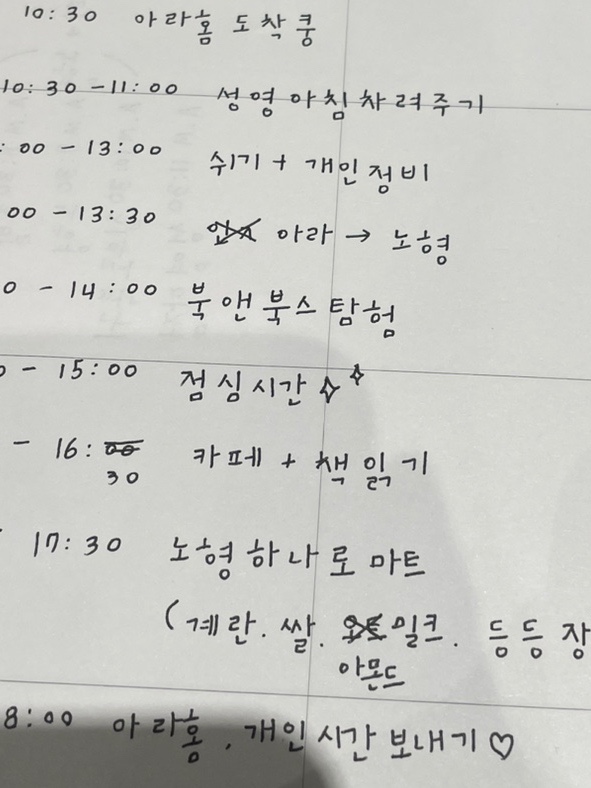 10:30 아라홈 도착쿵
10:30 - 11:00 성영아침차려주기
:00 - 13:00 쉬기 + 개인정비
00 - 13:30 아라 → 노형
0 - 14:00 북앤북스탐험
0 - 15:00 점심시간✧✧
- 16:30 카페 + 책 읽기
17:30 노형하나로마트
(계란. 쌀. 아몬드밀크. 등등 장
8:00 아라홈. 개인시간보내기♡